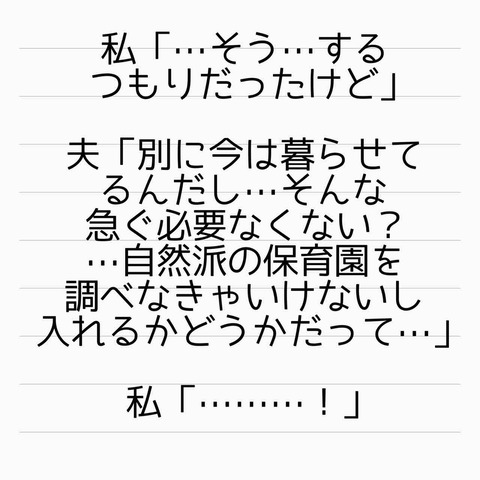 私「…そう…する
つもりだったけど」
夫「別に今は暮らせて
るんだし…そんな
急ぐ必要なくない？
…自然派の保育園を
調べなきゃいけないし
入れるかどうかだって…」
私「………！」